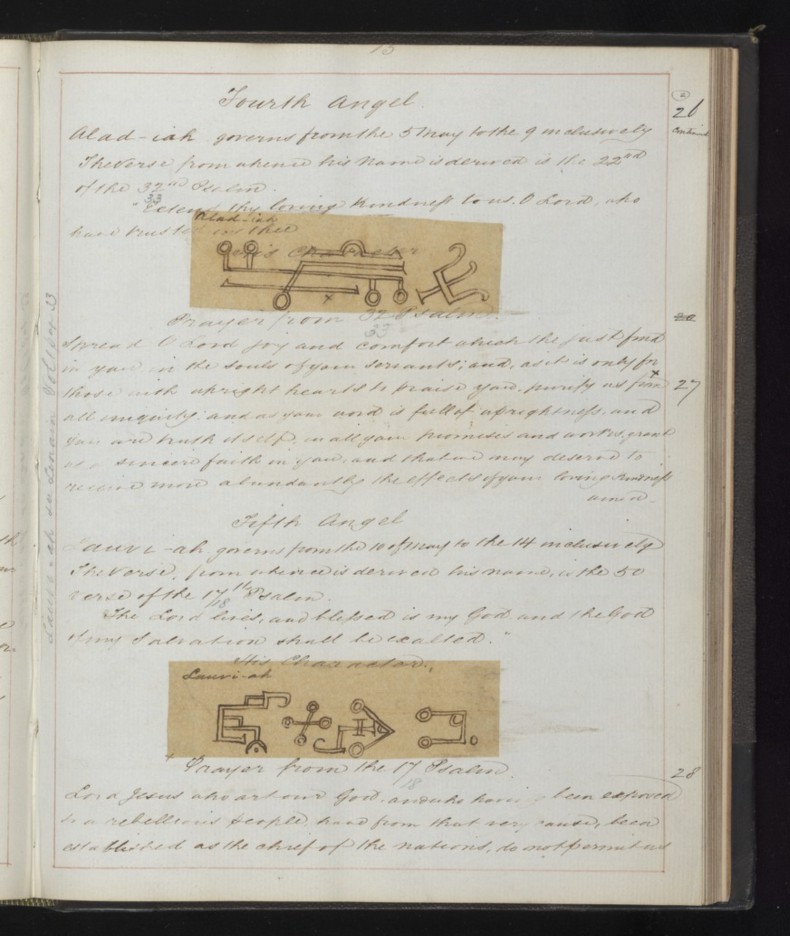 15
Fourth Angel.
26
continued
Alad-iah governs from the 5 May to the 9 inclusively
The Verse from whence his Name is derived is the 22nd
of the 32nd Psalm.
33
"Extend thy loving Kindness to us O Lord, who
Alad-iah
have trusted in thee
His Character
Prayer from 32 Psalm.
33
Spread O Lord joy and comfort which the just find
in you in the souls of your servants; and, as it is only for
those with upright hearts to praise you, purify us from
27
all iniquity: and as your word is full of uprightness, and
you are truth itself, in all your promises and works, grant
us a sincere faith in you, and that we may deserve to
receive more abundantly the effects of your loving Kindness
amen.
Fifth Angel
Lauvi-ah governs from the 10 of May to the 14 inclusively
The Verse, from whence is derived his name, is the 50
verse of the 17th Psalm.
18
The Lord lives, and blessed is my God, and the God
of my Salvation shall be exalted."
His Character.
Lauvi-ah
Prayer from the 17 Psalm.
18
28
Lord Jesus who art our God, and who having been exposed
to a rebellious people have from that very cause, been
established as the chief of the nations, do not permit us